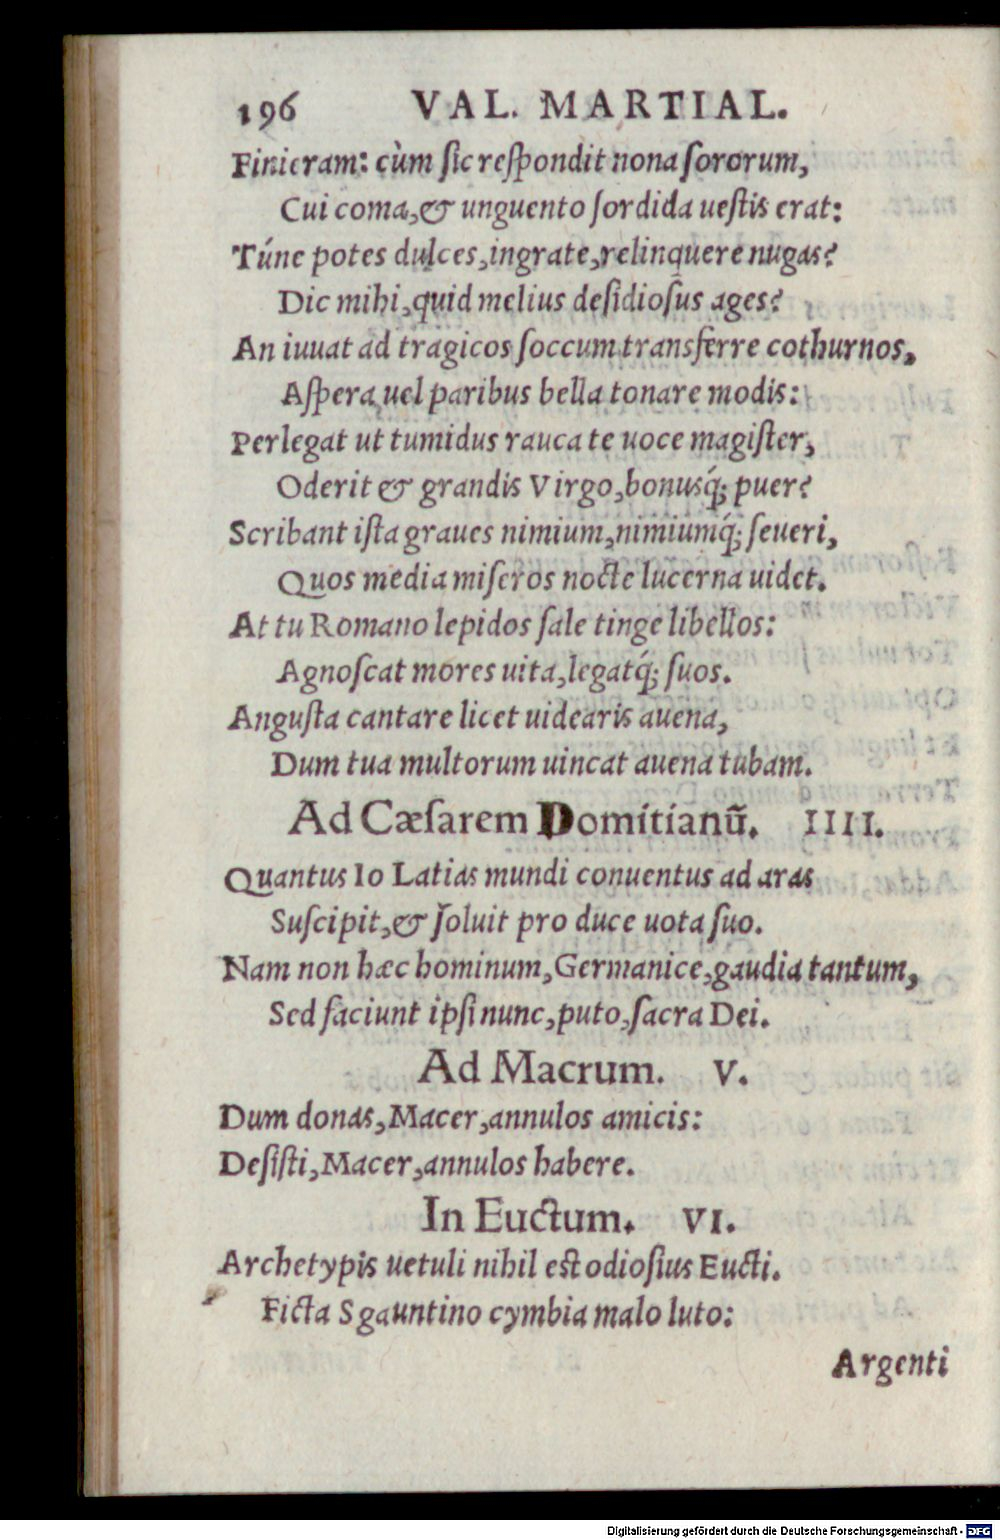 196 VAL. MARTIAL.
Finieram: cùm ſic reſpondit nona ſororum,
Cui coma, & unguento ſordida ueſtis erat:
Túne potes dulces, ingrate, relinquere nugas?
Dic mihi, quid melius deſidioſus ages?
An iuuat ad tragicos ſoccum transferre cothurnos,
Aſpera uel paribus bella tonare modis:
Perlegat ut tumidus rauca te uoce magiſter,
Oderit & grandis Virgo, bonusq́; puer?
Scribant iſta graues nimium, nimiumq́; ſeueri,
Quos media miſeros nocte lucerna uidet.
At tu Romano lepidos ſale tinge libellos:
Agnoſcat mores uita, legatq́; ſuos.
Anguſta cantare licet uidearis auena,
Dum tua multorum uincat auena tubam.
Ad Cæſarem Domitianũ. IIII.
Quantus Io Latias mundi conuentus ad aras
Suſcipit, & ſoluit pro duce uota ſuo.
Nam non hæc hominum, Germanice, gaudia tantum,
Sed faciunt ipſi nunc, puto, ſacra Dei.
Ad Macrum. V.
Dum donas, Macer, annulos amicis:
Deſiſti, Macer, annulos habere.
In Euctum. VI.
Archetypis uetuli nihil est odioſius Eucti.
Ficta Sgauntino cymbia malo luto:
Argenti
Digitalisierung gefördert durch die Deutsche Forschungsgemeinschaft - DFG